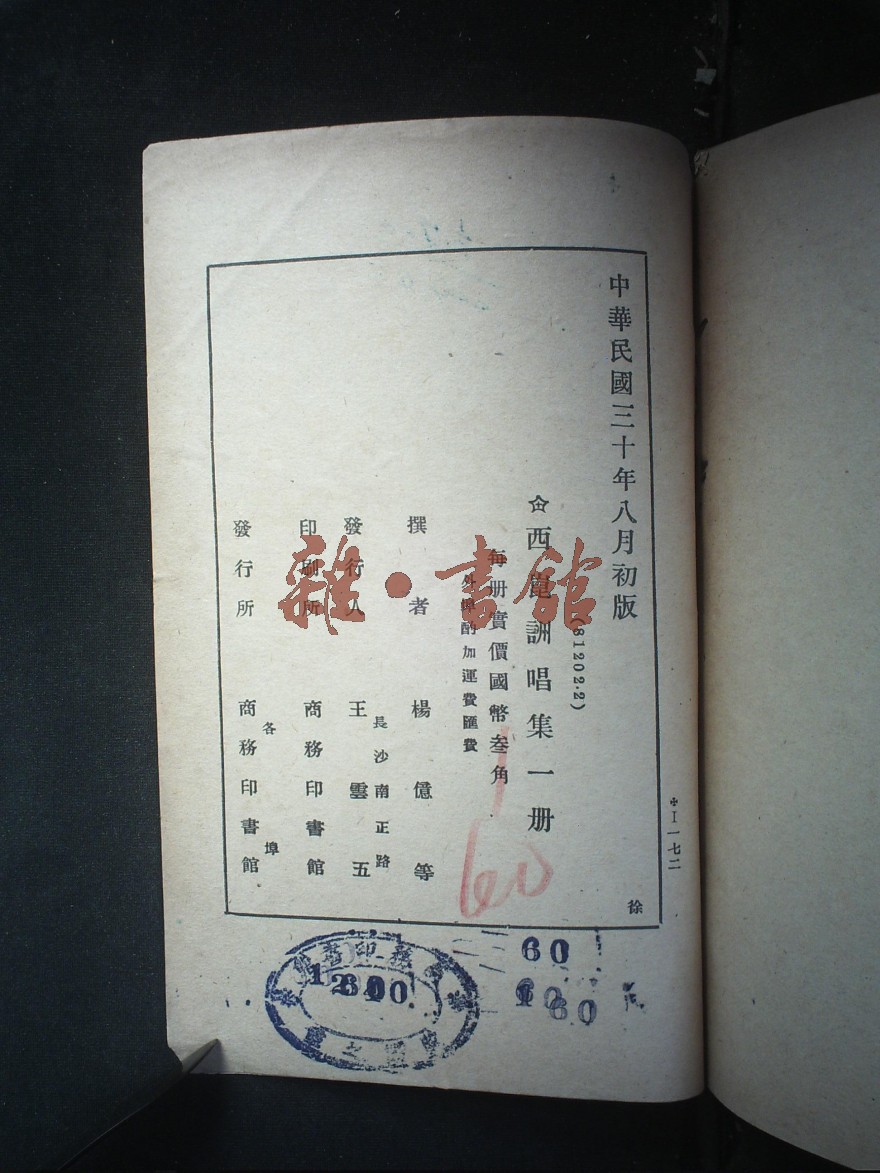 中華民國三十年八月初版
(61202·2)
西崑詶唱集一册
每册實價國幣叁角
外埠酌加運費匯費
撰者 楊億等
發行人 王雲五
長沙南正路
印刷所 商務印書館
發行所 商務印書館
各埠
✠I一七二
徐
雜·書館
1
60
60
60